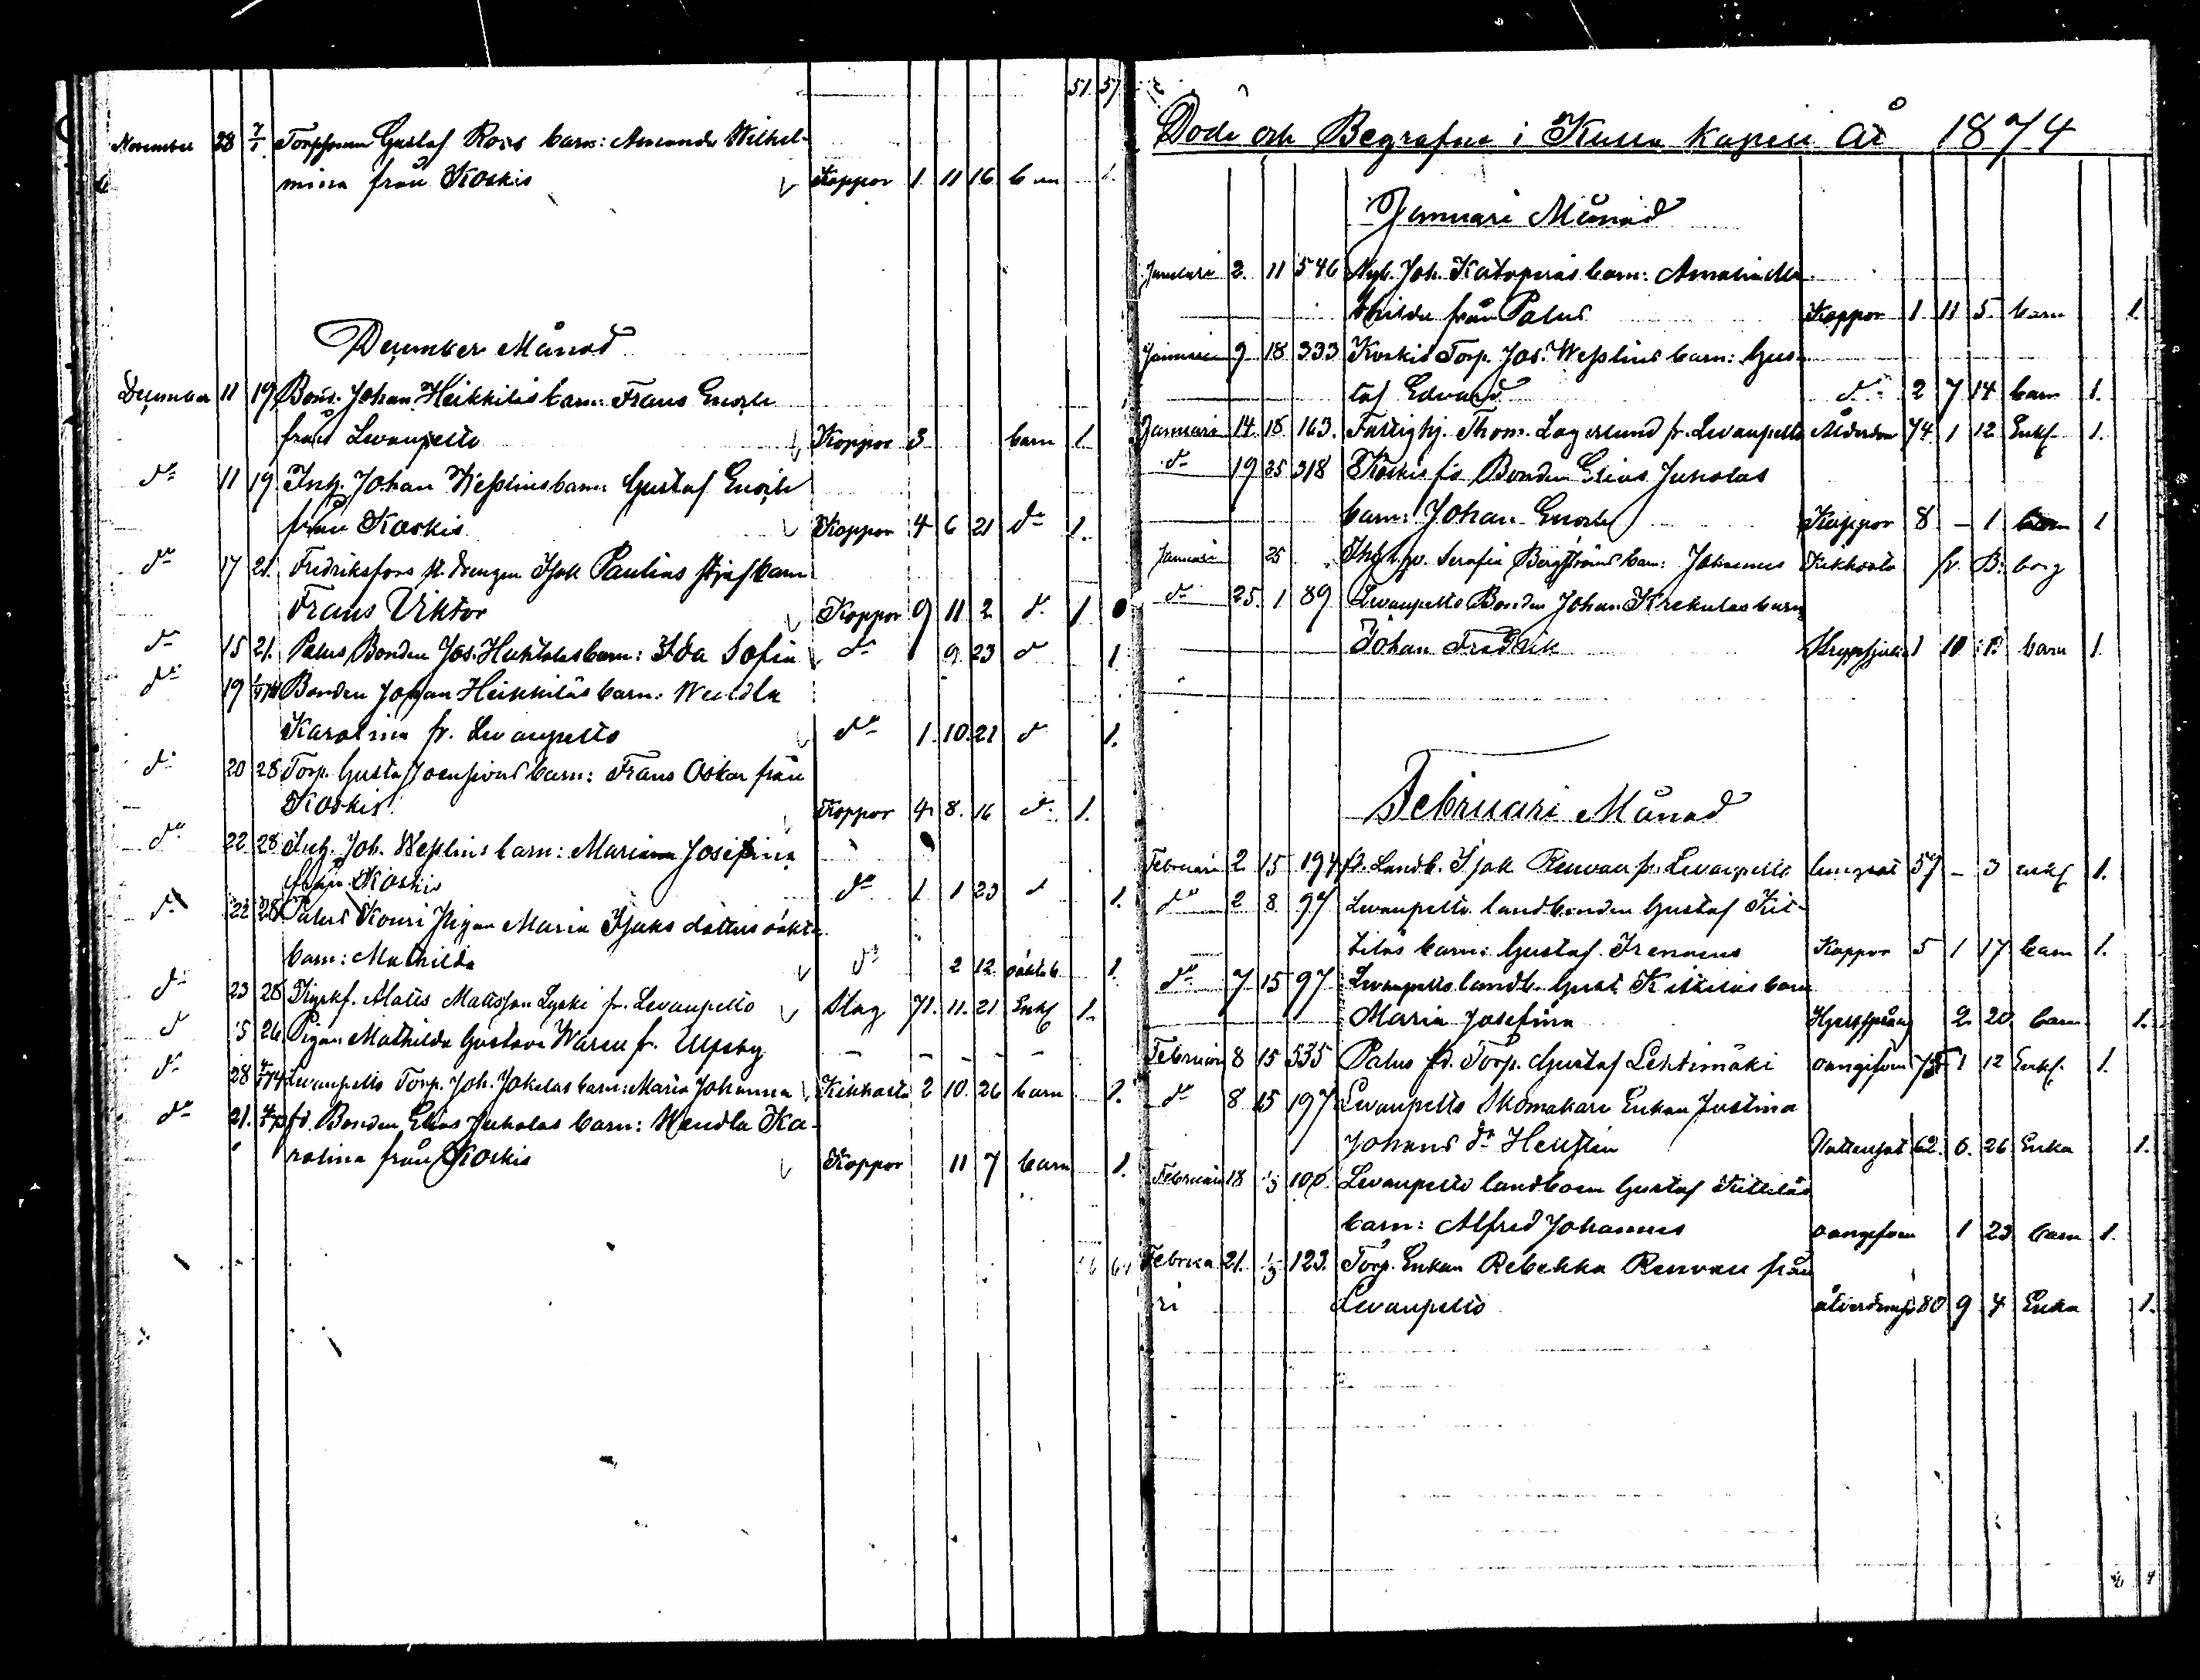 51 57
November 28 7/1 Torpparen Gustaf Roos barn: Amanda Wilhel-
mina från Koskis Koppor 1 11 16 barn 1.
December Månad
December 11 19 Bond. Johan Heikkiläs barn: Frans Enok
från Levanpelto Koppor 3 barn 1
do 11 19. Inh. Johan Wesslins barn: Gustaf Enok
från Koskis Koppor 4 6 21 do 1.
do 17 21. Fredriksfors st. drengen Isak Paulins barn
Frans Viktor Koppor 9 11 2 do 1
do 15 21. Palus Bonden Jos. Huhtalas barn: Ida Sofia do 9 23 do 1
do 19 Bonden Johan Heikkiläs barn: Wendla
Karolina fr. Levanpelto do 1. 10. 21 do 1.
do 20 28 Torp. Gustaf barn: Frans Oskar från
Koskis Koppor 4 8. 16 do 1.
do 22 28 Inh. Joh. Wesslins barn: Maria Josefina
från Koskis do 1 1 23 do 1.
do 22 28 Palus Kouri Pigan Maria Isaks dotters oäkta
barn: Mathilda do 2 12. oäkta b. 1.
do 23 28 Matts Mattsson fr. Levanpelto Slag 71. 11. 21 Enkl 1.
do 15 26 Pigan Mathilda Gustava Waren fr. Ulfsby — — — — —
do 28 Levanpelto Torp. Joh. Jokelas barn: Maria Johanna Kikhosta 2 10. 26 barn 1.
do 21. fd. Bonden Elias Juholas barn: Wendla Ka-
rolina från Koskis Koppor 11 7 barn 1.
Döde och Begrafne i Kulla kapell År 1874
Januari Månad
Januari 2. 11 546 Nyb. Joh. barn: Amalia Ma-
thilda från Palus Koppor 1 11 5. barn 1.
Januari 9 18 333 Koskis Torp. Jos. Wesslins barn: Gus-
taf Edvard do 2 7 14 barn 1.
Januari 14. 18. 163. Thom. Lagerlund fr. Levanpelto Ålderdom 74 1 12 Enkl 1.
do 19 25 318 Koskis fd Bonden Elias Juholas
barn: Johan Enok Koppor 8 — 1 barn 1
Januari 25 Serafia Bergströms barn: Johannes Kikhosta fr. B:borg
do 25. 1 89 Levanpelto Bonden Johan Krekulas barn
Johan Fredrik 1 10 barn 1.
Februari Månad
Februari 2 15 197 fd. Landb. Isak Renvan fr. Levanpelto lungsot 57 — 3 enkl 1.
do 2 8. 97 Levanpelto landbonden Gustaf Kit-
tiläs barn: Gustaf Irenaeus Koppor 5 1 17 barn 1.
do 7 15 97 Levanpelto landb. Gust Kittiläs barn
Maria Josefina 2. 20. barn 1.
Februari 8 15 535 Palus fd. Torp. Gustaf Lehtimäki oangifven 75 1 12 Enkl. 1.
do 8 15 197 Levanpelto Skomakare Enkan Justina
Johans dr Wattensot 62. 6. 26 Enka 1.
Februari 18 1/3 100. Levanpelto landboen Gustaf Kittiläs
barn: Alfred Johannes oangifven 1 23 barn 1.
Februa 21. 1/3 123. Torp. Enkan Rebekka Renvan från
ri Levanpelto ålderdoms 80 9 4 Enka 1.